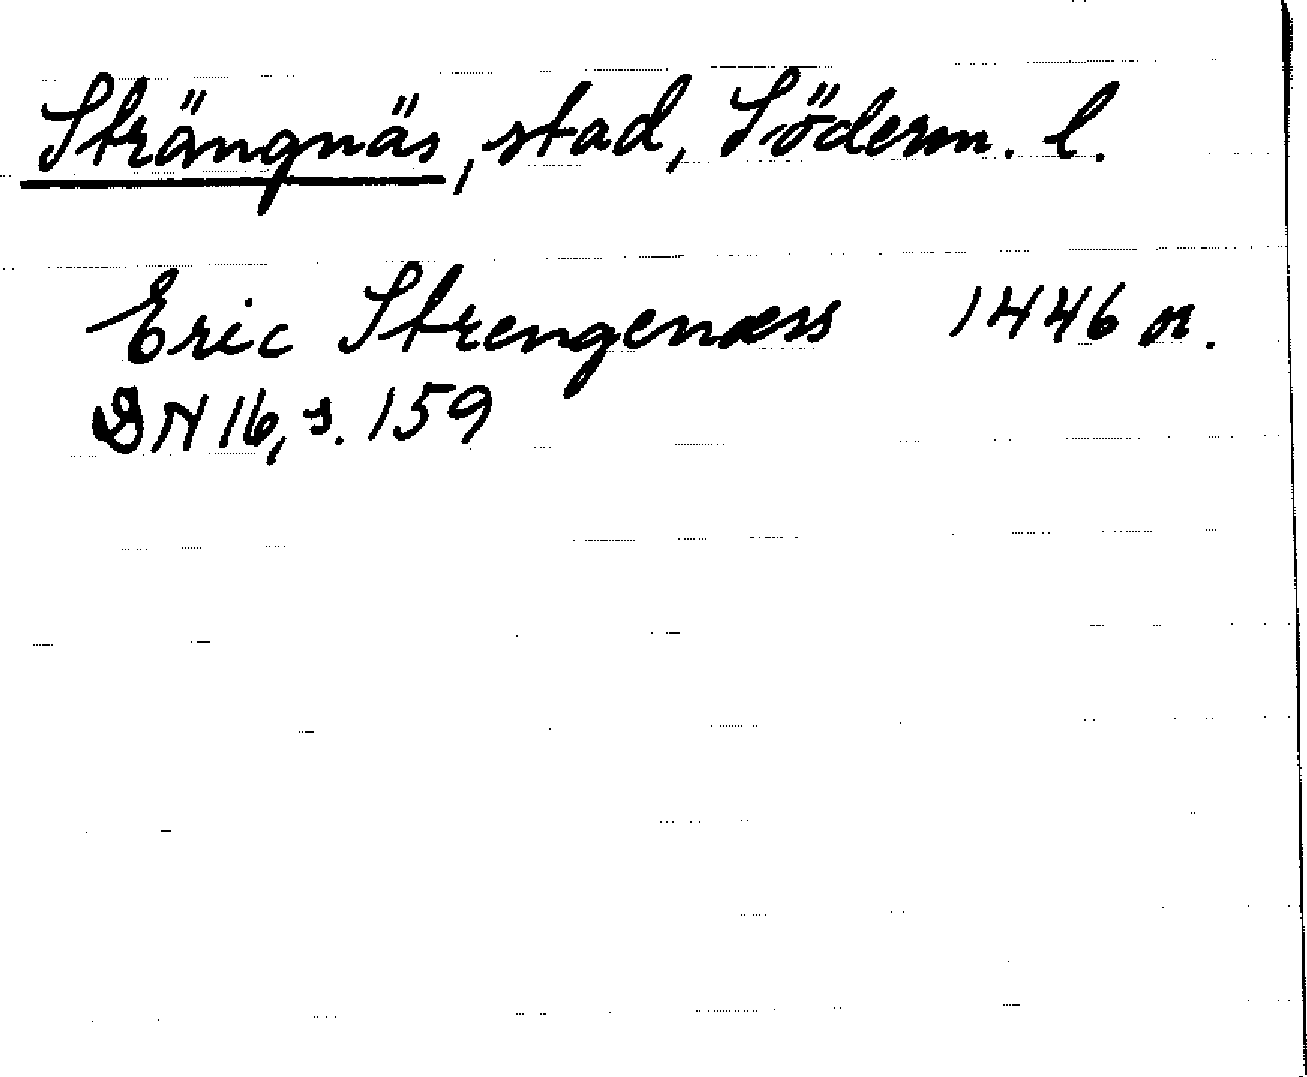 Strängnäs, stad, Söderm. l.
Eric Strengenæss 1446 or.
DN 16, s. 159